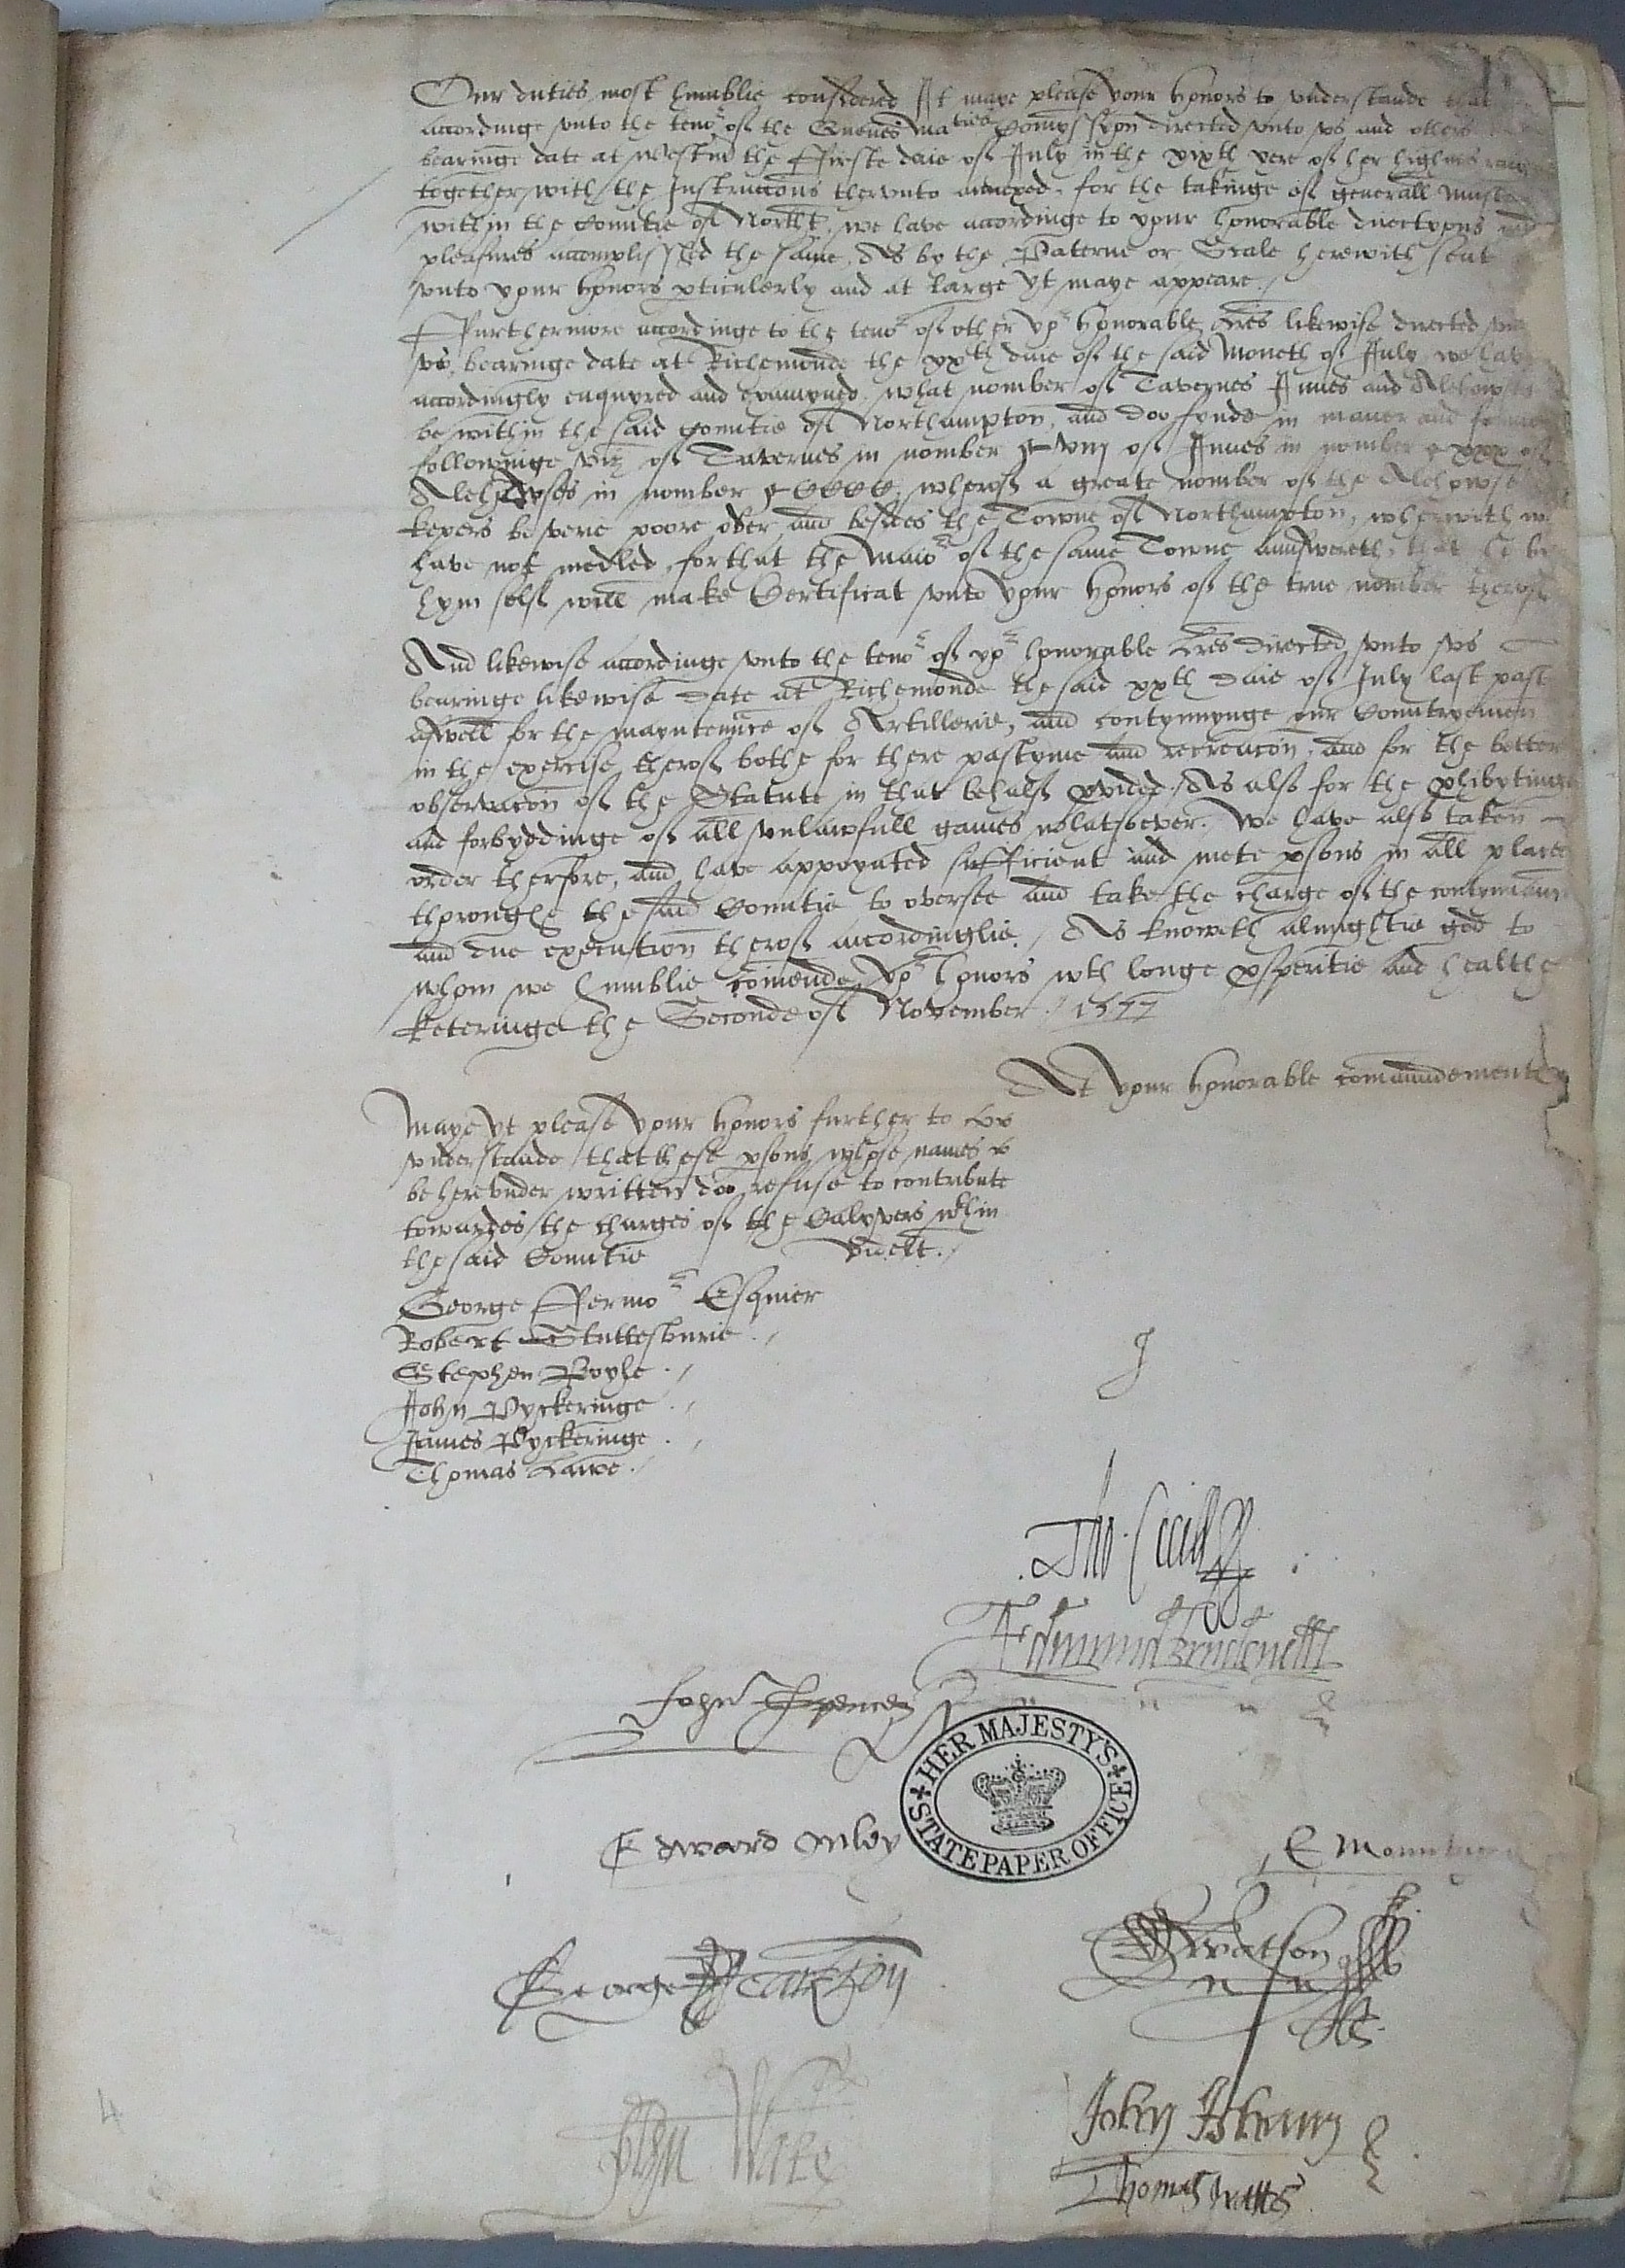 Our duties most humblie considered It maye please your honors to understande that
accordinge unto the teno^r of the Quenes Ma^ties Comyssyon directed unto us and others
bearinge date at Westm the Ffirste daie of July in the xixth yere of her highnes
together with the Instruccons therunto annexed, for the takinge of generall
within the Countie of Northt, we have accordinge to your honorable directyons and
pleasures accomplisshed the same, As by the Paterne or Scale herewith sent
unto your honors pticulerly and at large yt maye appeare./
Ffurthermore accordinge to the teno^r of other yo^r honorable lres likewise directed
us, bearinge date at Richemonde the xxth daie of the said Moneth of July, we have
accordingly enquyred and examyned, what nomber of Tavernes Innes and Alehowses
be within the said Countie of Northampton, and doo fynde in maner and forme
followinge viz of Tavernes in nomber viij of Innes in nomber xxx of
Alehowses in nomber CCCC, wherof a greate nomber of the Alehowse
kepers be verie poore over and besides the Towne of Northampton, wherwith we
have not medled, for that the Maio^r of the same Towne aunswereth, that he by
hym self will make Certificat unto your honors of the true nomber therof
And likewise accordinge unto the teno^r of yo^r honorable lres directed unto us
bearinge likewise date at Richemonde the said xxth daie of July last past
aswell for the mayntenũce of Artillerie, and contynuynge our Countryemen
in the exercise therof bothe for there pastyme and recreacon, and for the better
observacon of the Statute in that behalf pvided, As also for the phibytinge
and forbyddinge of all unlawfull games whatsoever. We have also taken
order therfore, and have appoynted sufficient and mete psons in all places
throughe the said Countie to oversee and take the charge of the
and due execution therof accordinglie./ As knoweth almightie god to
whom we humblie comende yo^r honors wth longe psperitie and healthe
keteringe the Seconde of November / 1577
At your honorable comaundement
Maye yt please your honors further to
understande that these psons whose names
be hereunder written doo refuse to contribute
towardes the charges of the Calyvers wthin
the said Countie vizelt./
George Ffermo^r Esquier
Robert Stuttesburie ./
Stephen Boyle ./
John Pyckeringe ./
James Pyckeringe ./
Thomas Lawe ./
Tho. Cecill
Edmund Brudenell
John Spencer
HER MAJESTY'S STATE PAPER OFFICE
Edward Onley
E Mountagu
George Carleton
E Watson
John Wake
John Isham
Thomas Watts
4